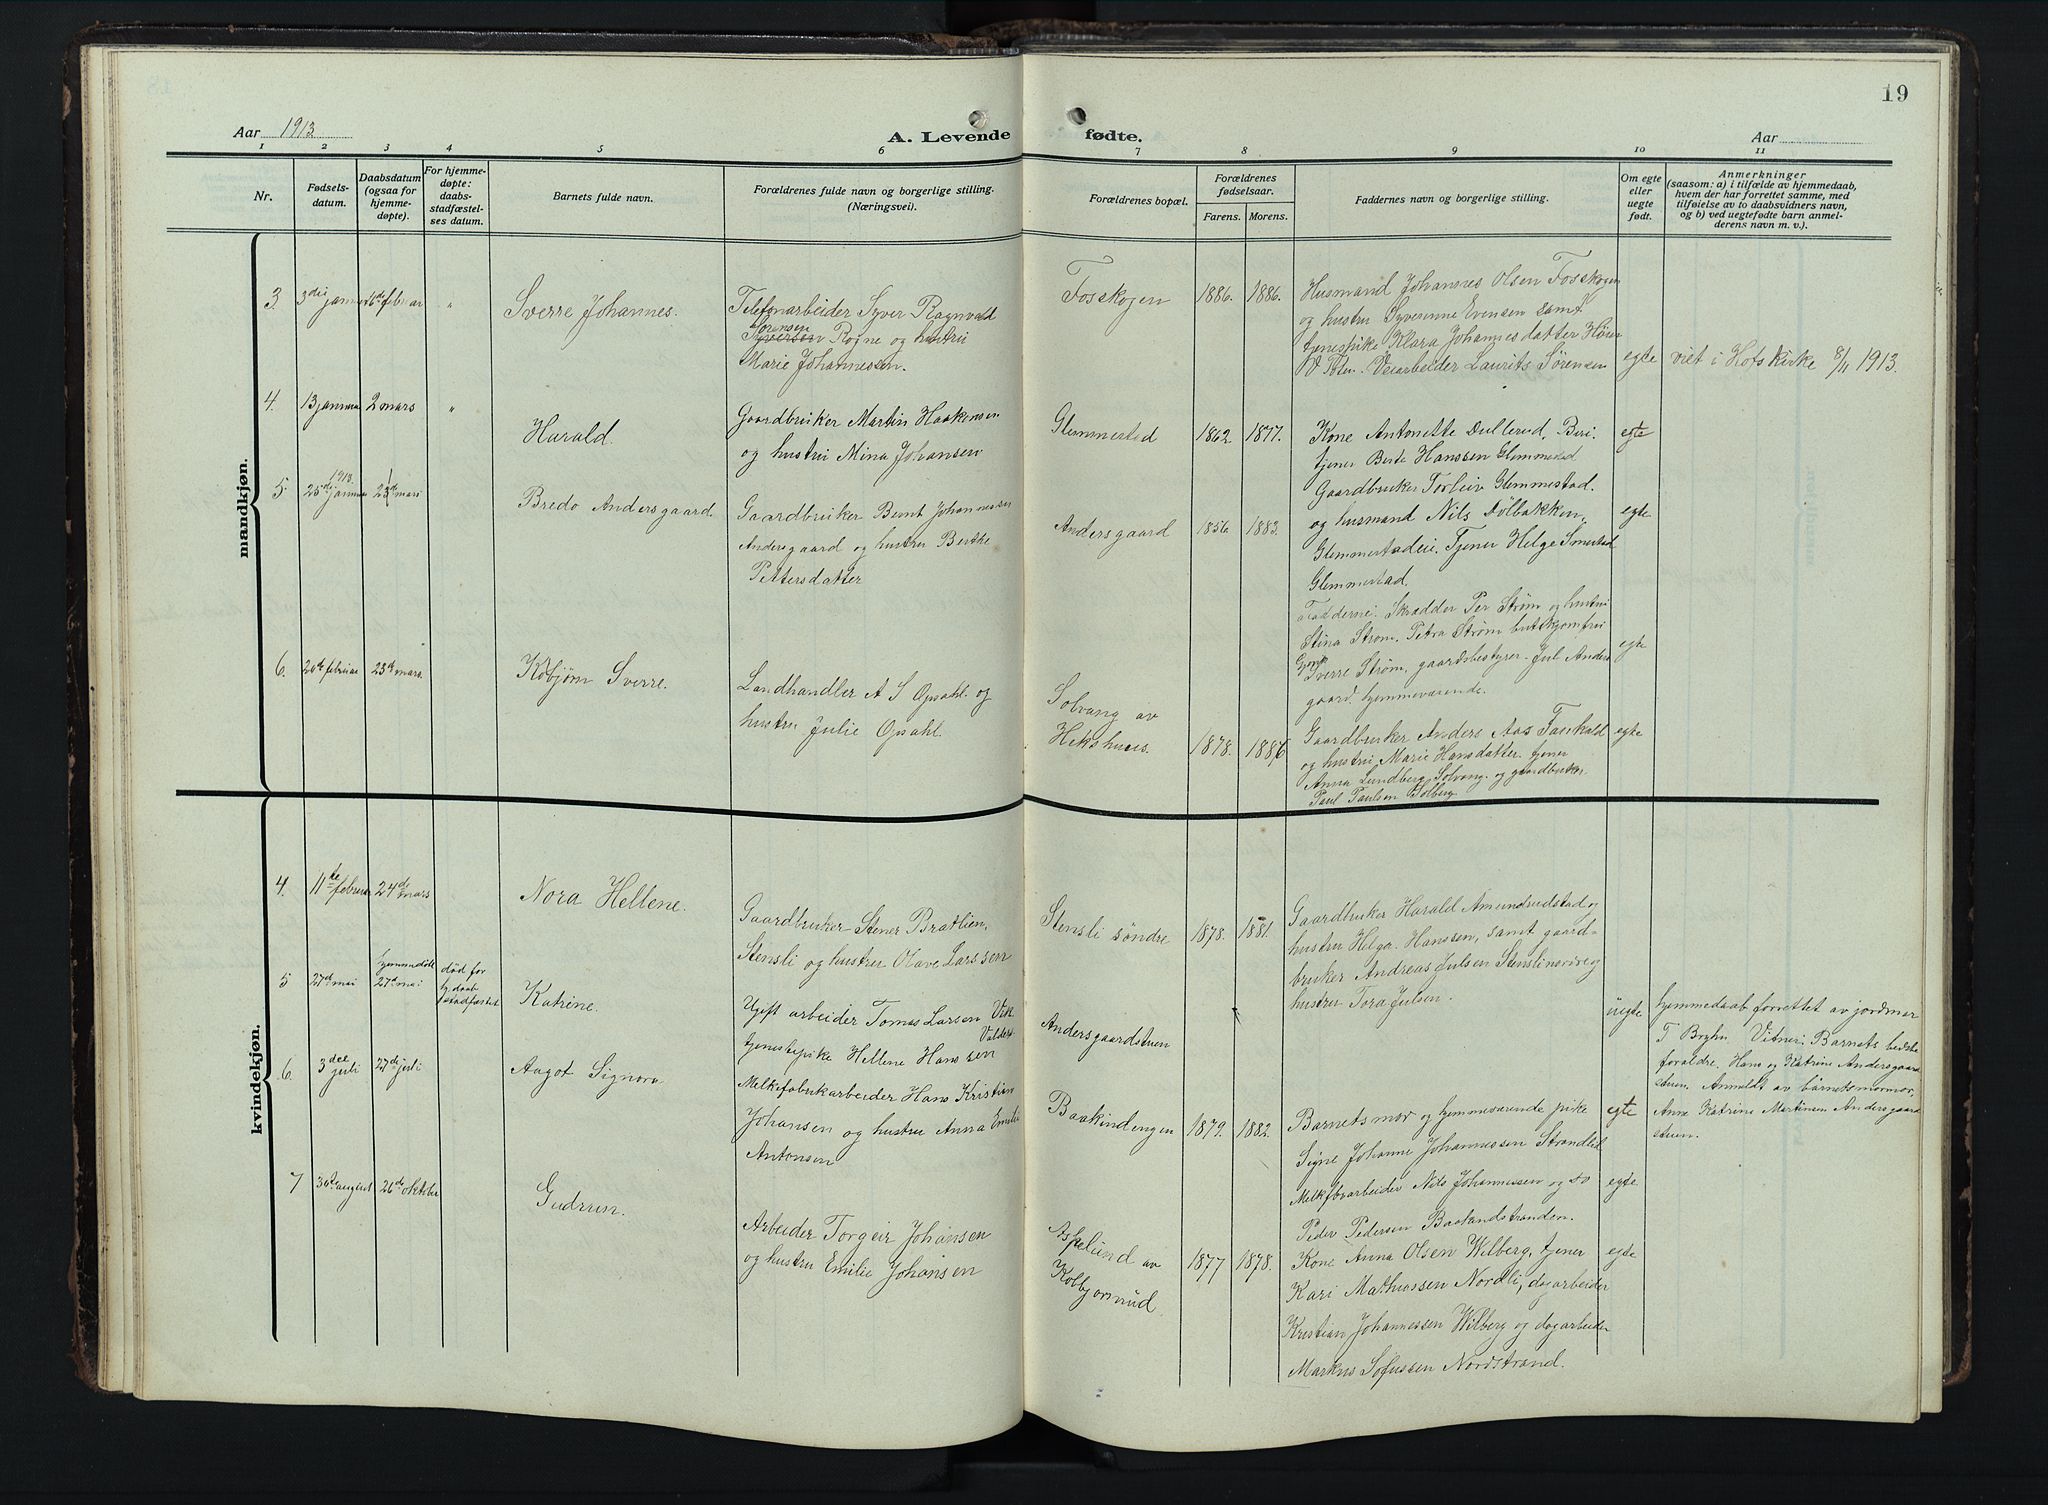 19
Aar 1913
A. Levende fødte.
Aar
1 2 3 4 5 6 7 8 9 10 11
Nr.
Fødsels-
datum.
Daabsdatum
(ogsaa for
hjemme-
døpte).
For hjemme-
døpte:
daabs-
stadfæstel-
ses datum.
Barnets fulde navn.
Forældrenes fulde navn og borgerlige stilling.
(Næringsvei).
Forældrenes bopæl.
Forældrenes
fødselsaar.
Farens. Morens.
Faddernes navn og borgerlige stilling.
Om egte
eller
uegte
født.
Anmerkninger
(saasom: a) i tilfælde av hjemmedaab,
hvem der har forrettet samme, med
tilføielse av to daabsvidners navn,
og b) ved uegtefødte barn anmel-
derens navn m. v.).
mandkjøn.
3.
Sverre Johannes.
Telefonarbeider Syver Ragnvald
Sørensen
Syversen Rogne og hustru
Marie Johannessen.
Fosskogen
1886. 1886.
Husmand Johannes Olsen Fosskogen
og hustru Syverinne Evensen samt
tjenespike Klara Johannesdatter
V Toten. Veiarbeider Laurits Sørensen
egte
viet i Hofs kirke 8/11 1913.
4. 13 januar 2 mars "
Harald.
Gaardbruker Martin Haakensen
og hustru Mina Johansen
Glemmestad
1862. 1877.
Kone Antonette Dullerud, Biri.
tjener Berte Hanssen Glemmestad
Gaardbruker Torleiv Glemmestad.
og husmand Nils Dølbakken,
Glemmestadeie. Tjener Helge Smestad
Glemmestad.
egte
5. 1913.
25de januar
Bredo Andersgaard.
Gaardbruiker Bernt Johannessen
Andersgaard og hustru Berthe
Pettersdatter
Andersgaard
1856. 1883.
egte
Fadderne: Skrædder Per Strøm og hustru
Stina Strøm, Petra Strøm
Sverre Strøm, gaardsbestyrer. Jul Anders
gaard hjemmeværende.
egte
6. 20de februar 23de mars.
Kolbjørn Sverre.
Landhandler A S Opsahl og
hustru Julie Opsahl.
Solvang av
Hekshuus.
1878. 1886
Gaardbruker Anders Aas
og hustru Marie Hansdatter. tjener
Anna Lundberg Solvang. og gaardbruker
Paul Paulsen Solberg
egte
kvindekjøn.
4. 11te februar 24de mars
Nora Hellene.
Gaardbruker Stener Bratlien,
Stensli og hustru Olave Larssen
Stensli søndre
1878. 1881.
Gaardbruker Harald Amundrudstad og
hustru Helga Hanssen, samt gaard-
bruker Andreas Julsen Stensli nordre og
hustru Tora Julsen.
5 27de mai hjemmedøbt
27de mai
død for
hj. daab
stadfæstet
Katrine.
Ugift arbeider Tomas Larsen Vik
Valders
tjenestepike Hellene Hanssen
Andersgaardstuen
uegte
hjemmedaab forrettet av jordmor
T Bryhn. Vitner: Barnets bedste
forældre. Hans og Katrine Andersgaard
stuen. Anmeldt av barnets mormor,
Anne Katrine Martinsen Andersgaard
stuen.
6. 3dee juli 27de juli
Aagot Signora
Melkefabrikarbeider Hans Kristian
Johansen og hustru Anna Emilie
Antonsen
Baakindengen
1879. 1882.
Barnets mor og hjemmeværende pike
Signe Johanne Johannessen Strandlid
Melkfbrarbeider Nils Johannessen og do
Peder Pedersen Baalandstranden.
egte
egte
7 30de august 26de oktober
Gudrun.
Arbeider Torgeir Johansen
og hustru Emilie Johansen
Aspelund av
Kolbjørnrud.
1877 1878.
Kone Anna Olsen Wilberg, tjener
Kari Mathiassen Nordli, dagarbeider
Kristian Johannessen Wilberg og dagarbeider
Markus Sofussen Nordstrand.
egte